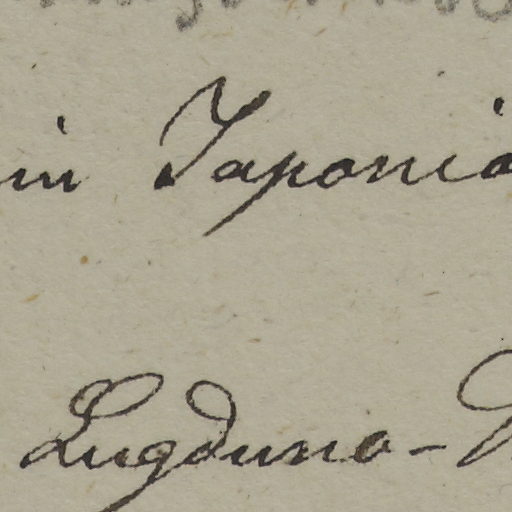 in Japonia
Lugduno-